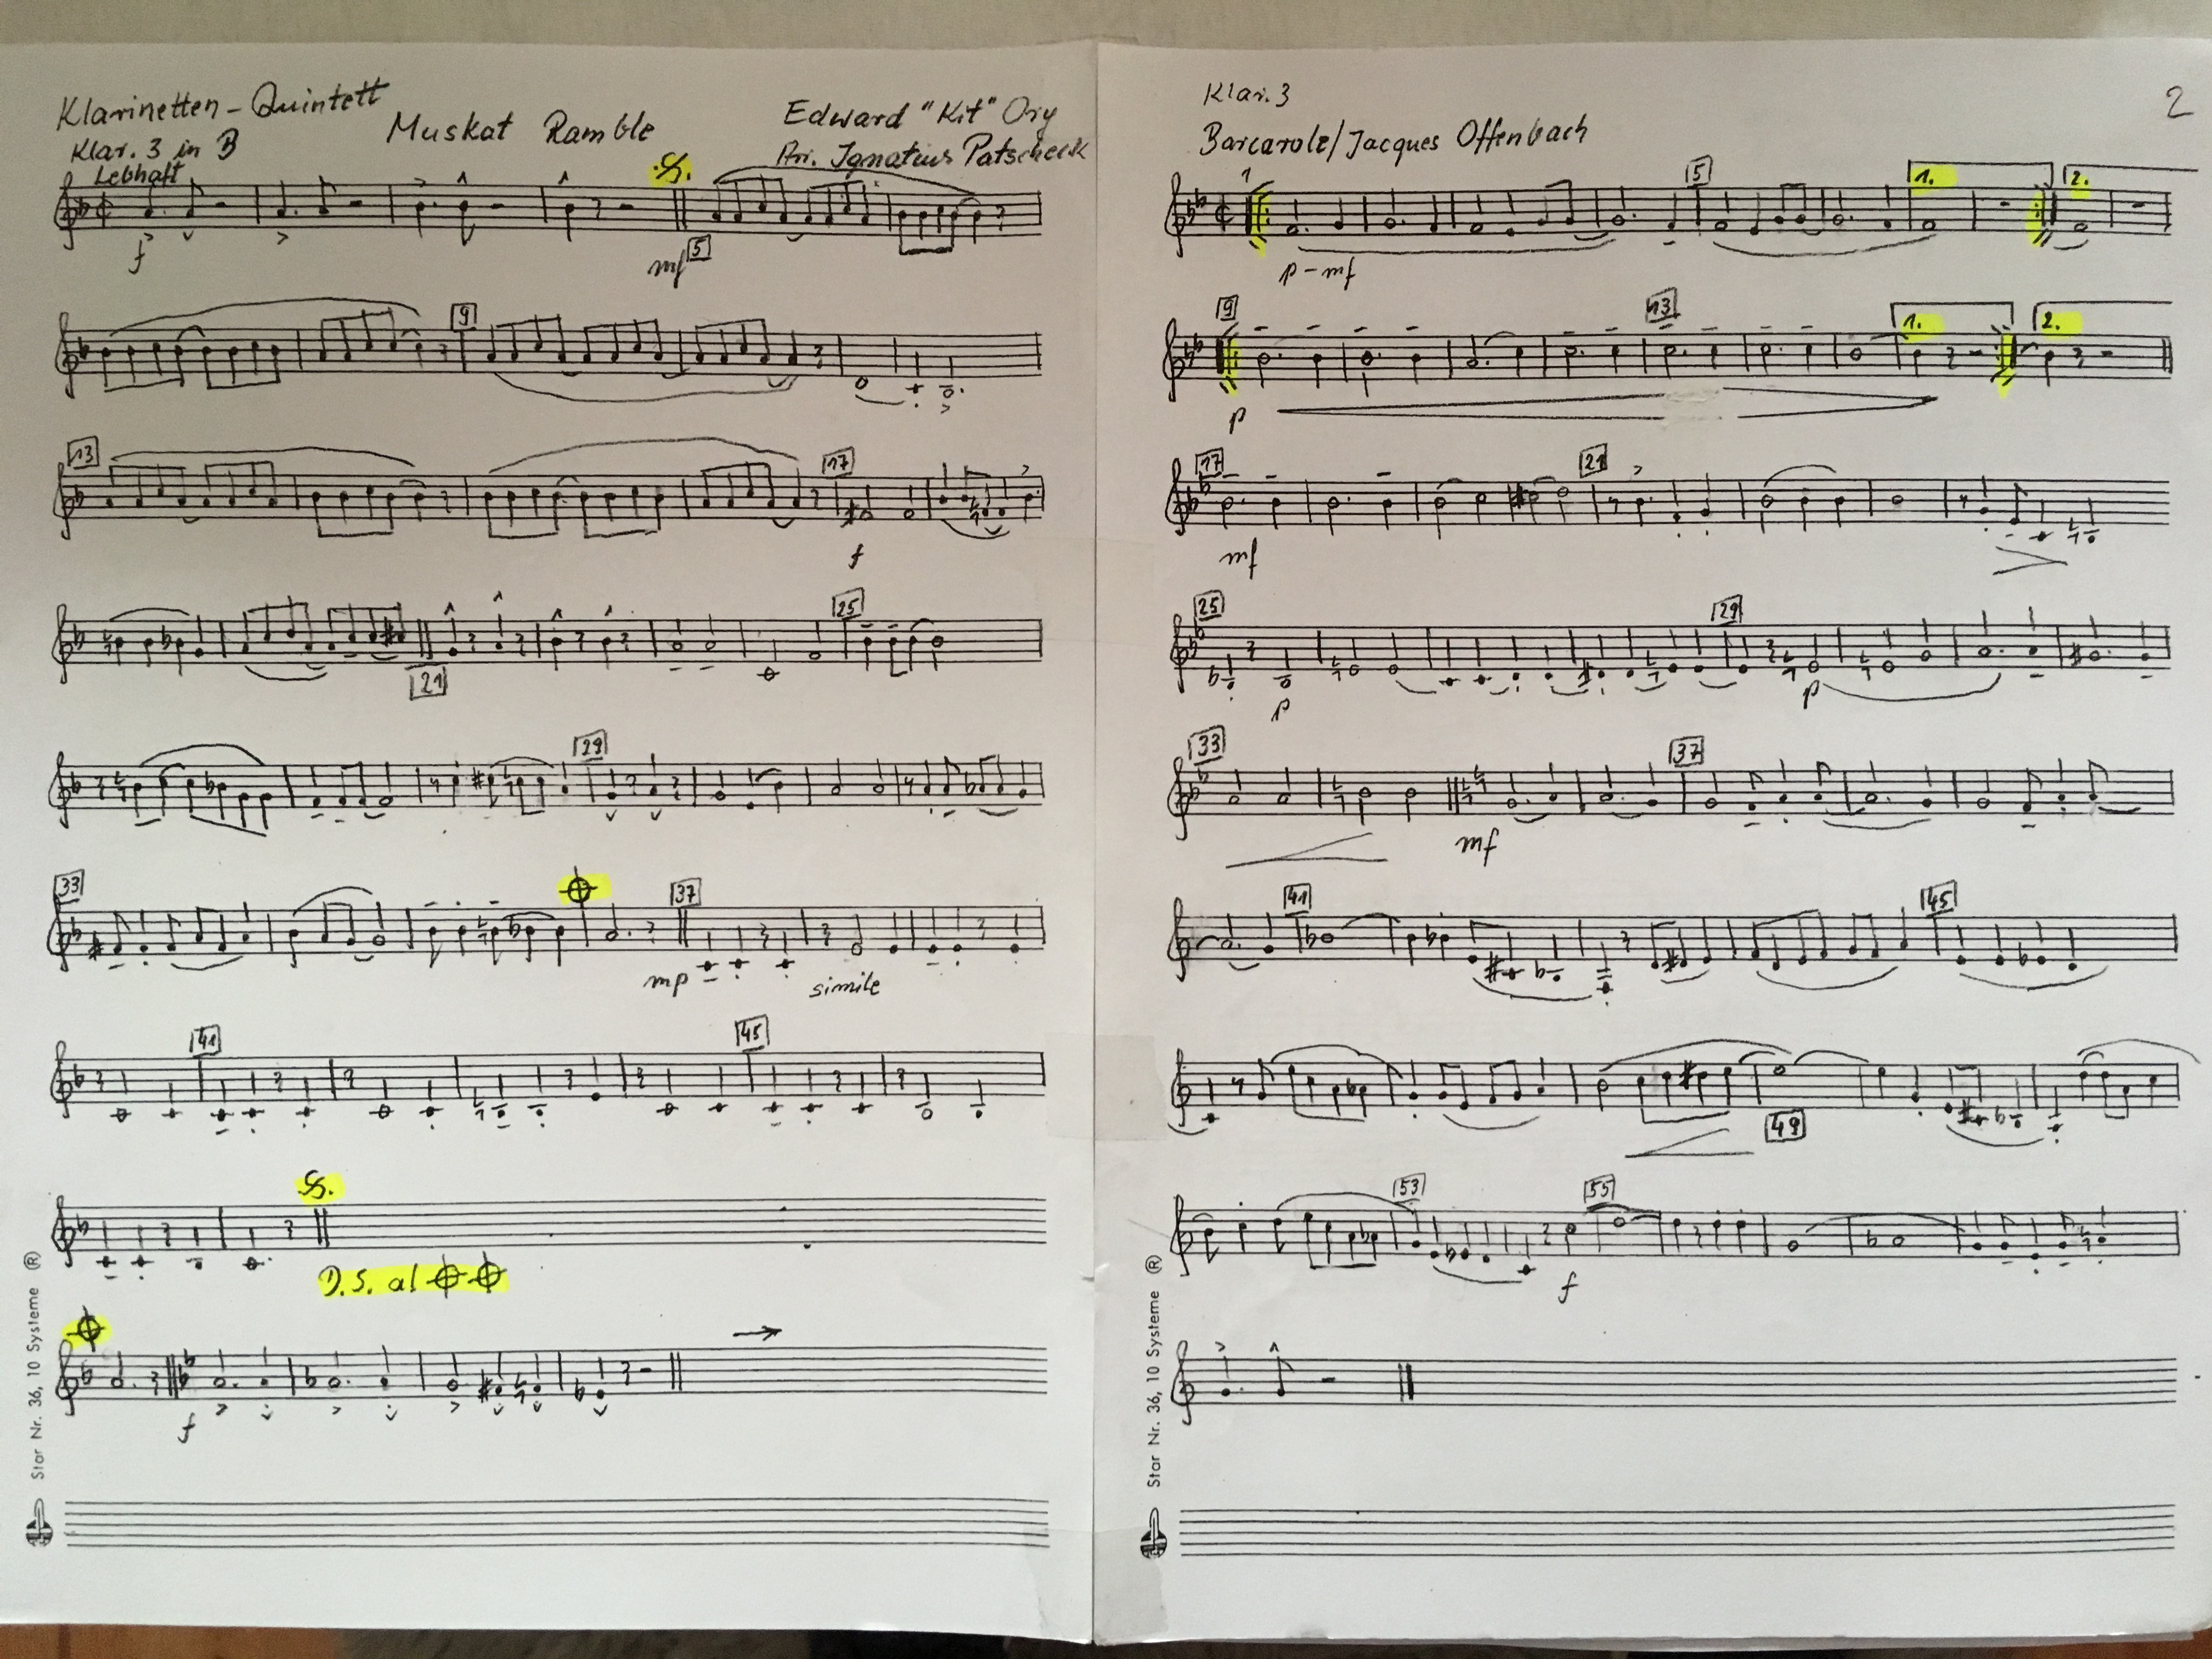 Klarinetten-Quintett
Klar. 3 in B
Muskat Ramble
Edward "Kit" Ory
Arr. Ignatius Patscheck
Lebhaft
f
mf
5
9
13
17
f
21
25
29
33
37
mp
simile
41
45
D.S. al
f
Star Nr. 36, 10 Systeme ®
Klar. 3
2
Barcarole/Jacques Offenbach
1
5
1.
2.
p-mf
9
13
1.
2.
p
17
21
mf
25
29
p
p
33
37
mf
41
45
49
53
55
f
Star Nr. 36, 10 Systeme ®